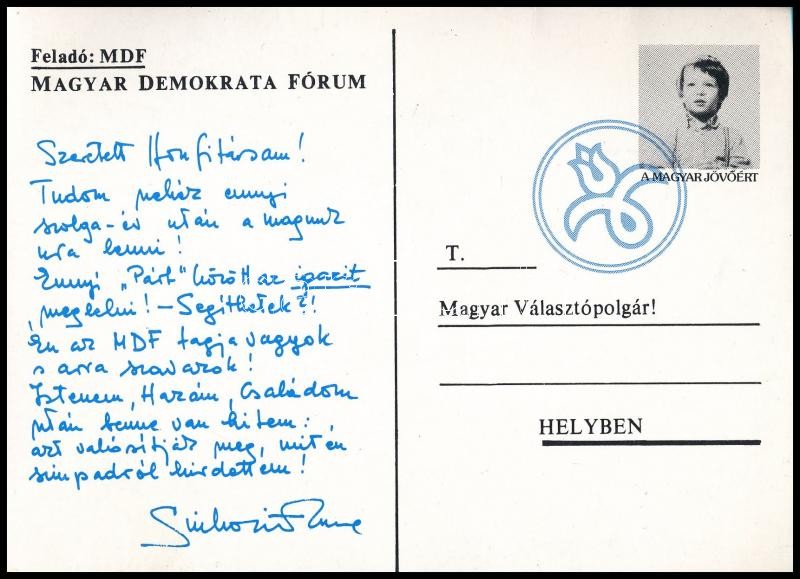 Feladó: MDF
MAGYAR DEMOKRATA FÓRUM
Szeretett Honfitársam!
Tudom nehéz ennyi
szolga-év után a magunk
ura lenni!
Ennyi „Párt" között az igazit
meglelni! – Segíthetek?!
Én az MDF tagja vagyok
s arra szavazok!
Istenem, Hazám, Családom
után benne van hitem:
azt valósítják meg, mit én
színpadról hirdettem!
Sinkovits Imre
A MAGYAR JÖVŐÉRT
T.
Magyar Választópolgár!
HELYBEN